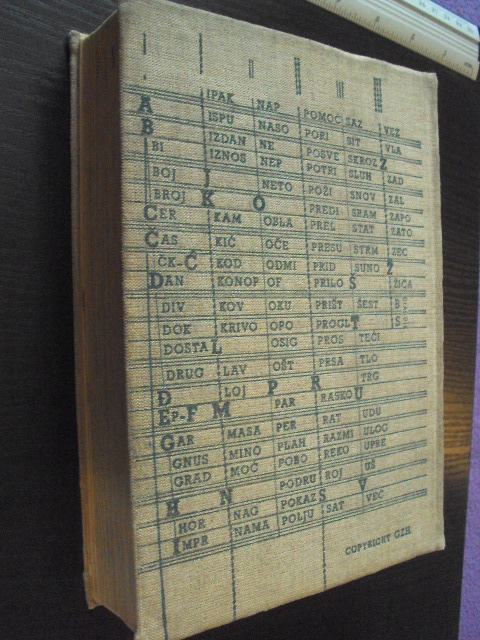 A IPAK NAP POMOĆ SAZ VEZ
B ISPU NASO PORI SIT VLA
BI IZDAN NE POSVE SKROZ Z
BOJ IZNOS NEP POTRI SLUH ZAD
BROJ I NETO POŽI SNOV ZAL
C K O PREDI SRAM ZAPO
CER KAM OBLA PREL STAT ZATO
Č KIĆ OČE PRESU STRM ZEC
ČAS KOD ODMI PRID SUNO Ž
ČK-Ć KONOP OF PRILO Š ŽICA
DAN KOV OKU PRIŠT ŠEST B
DIV KRIVO OPO PROGL T S
DOK L OSIG PROS TEČI
DOSTA LAV OŠT PRSA TLO
DRUG LOJ P R TRG
Đ M PAR RASKO U
EP-F MASA PER RAT UDU
GAR MINO PLAH RAZMI ULOG
GNUS MOĆ POBO REKO UPRE
GRAD N PODRU ROJ UŠ
H NAG POKAZ S V
HOR NAMA POLJU SAT VEĆ
IMPR
COPYRIGHT GZH